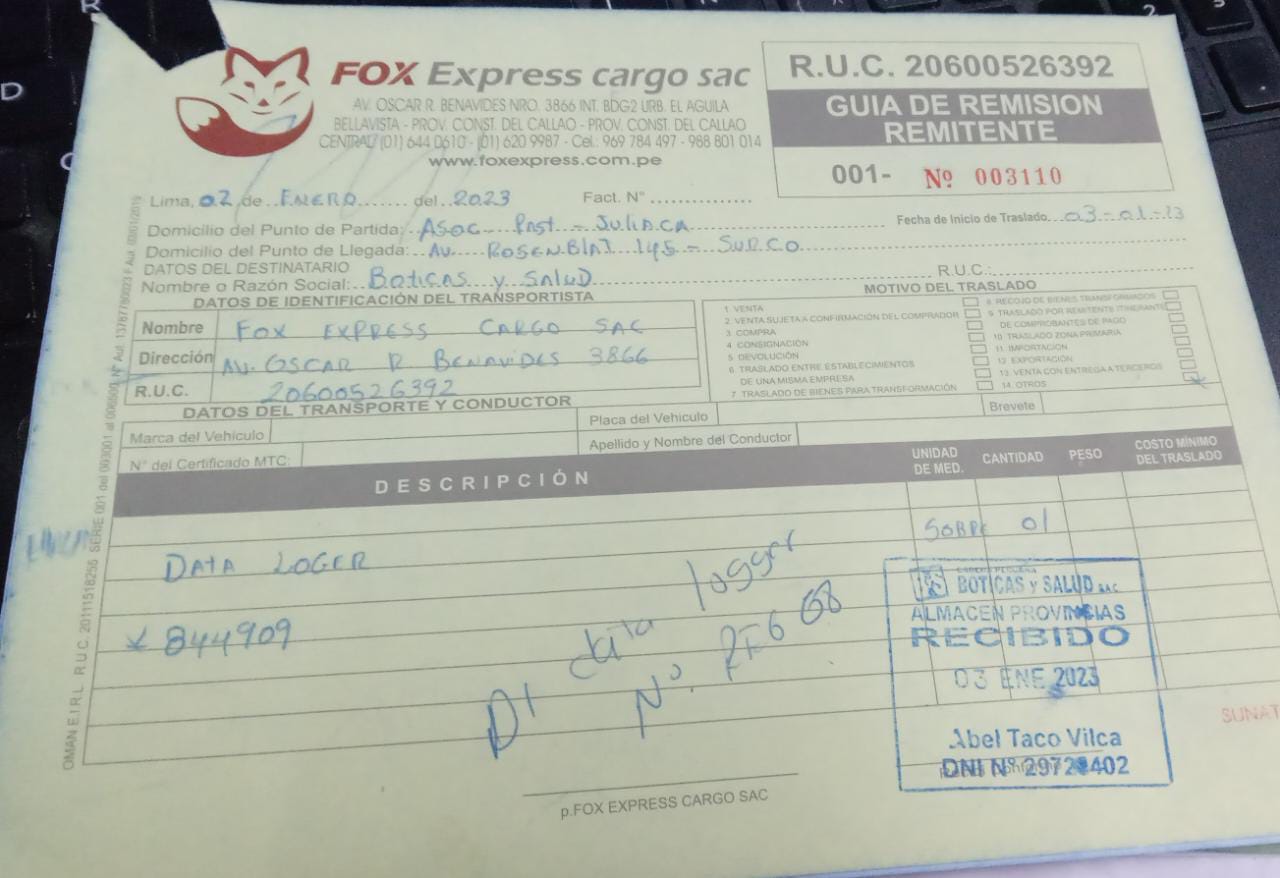 FOX Express cargo sac
AV. OSCAR R. BENAVIDES NRO. 3866 INT. BDG2 URB. EL AGUILA
BELLAVISTA - PROV. CONST. DEL CALLAO - PROV. CONST. DEL CALLAO
CENTRAL (01) 644 0610 - (01) 620 9987 - Cel.: 969 784 497 - 988 801 014
www.foxexpress.com.pe
R.U.C. 20600526392
GUIA DE REMISION
REMITENTE
001- Nº 003110
Lima, 02 de ENERO del 2023 Fact. N°
Fecha de Inicio de Traslado 03-01-23
Domicilio del Punto de Partida: ASOC Post - JULIACA
Domicilio del Punto de Llegada: AV. ROSENBLAT 145 - SURCO
DATOS DEL DESTINATARIO
Nombre o Razón Social: Boticas y Salud R.U.C.:
DATOS DE IDENTIFICACIÓN DEL TRANSPORTISTA
Nombre FOX EXPRESS CARGO SAC
Dirección AV. OSCAR R BENAVIDES 3866
R.U.C. 20600526392
MOTIVO DEL TRASLADO
1 VENTA
2 VENTA SUJETA A CONFIRMACIÓN DEL COMPRADOR
3 COMPRA
4 CONSIGNACIÓN
5 DEVOLUCIÓN
6 TRASLADO ENTRE ESTABLECIMIENTOS
DE UNA MISMA EMPRESA
7 TRASLADO DE BIENES PARA TRANSFORMACIÓN
8 RECOJO DE BIENES TRANSFORMADOS
9 TRASLADO POR REMITENTE ITINERANTE
DE COMPROBANTES DE PAGO
10 TRASLADO ZONA PRIMARIA
11 IMPORTACIÓN
12 EXPORTACIÓN
13 VENTA CON ENTREGA A TERCEROS
14 OTROS
DATOS DEL TRANSPORTE Y CONDUCTOR
Marca del Vehículo Placa del Vehículo Brevete
N° del Certificado MTC: Apellido y Nombre del Conductor
DESCRIPCIÓN UNIDAD DE MED. CANTIDAD PESO COSTO MÍNIMO DEL TRASLADO
SOBRE 01
DATA LOGER
844909
D1 data logger
Nº.
BOTICAS y SALUD S.A.C.
ALMACEN PROVINCIAS
RECIBIDO
03 ENE 2023
Abel Taco Vilca
DNI Nº 29728402
p.FOX EXPRESS CARGO SAC
SUNAT
OMAN E.I.R.L. R.U.C. 20111518255 SERIE 001 del 003001 al